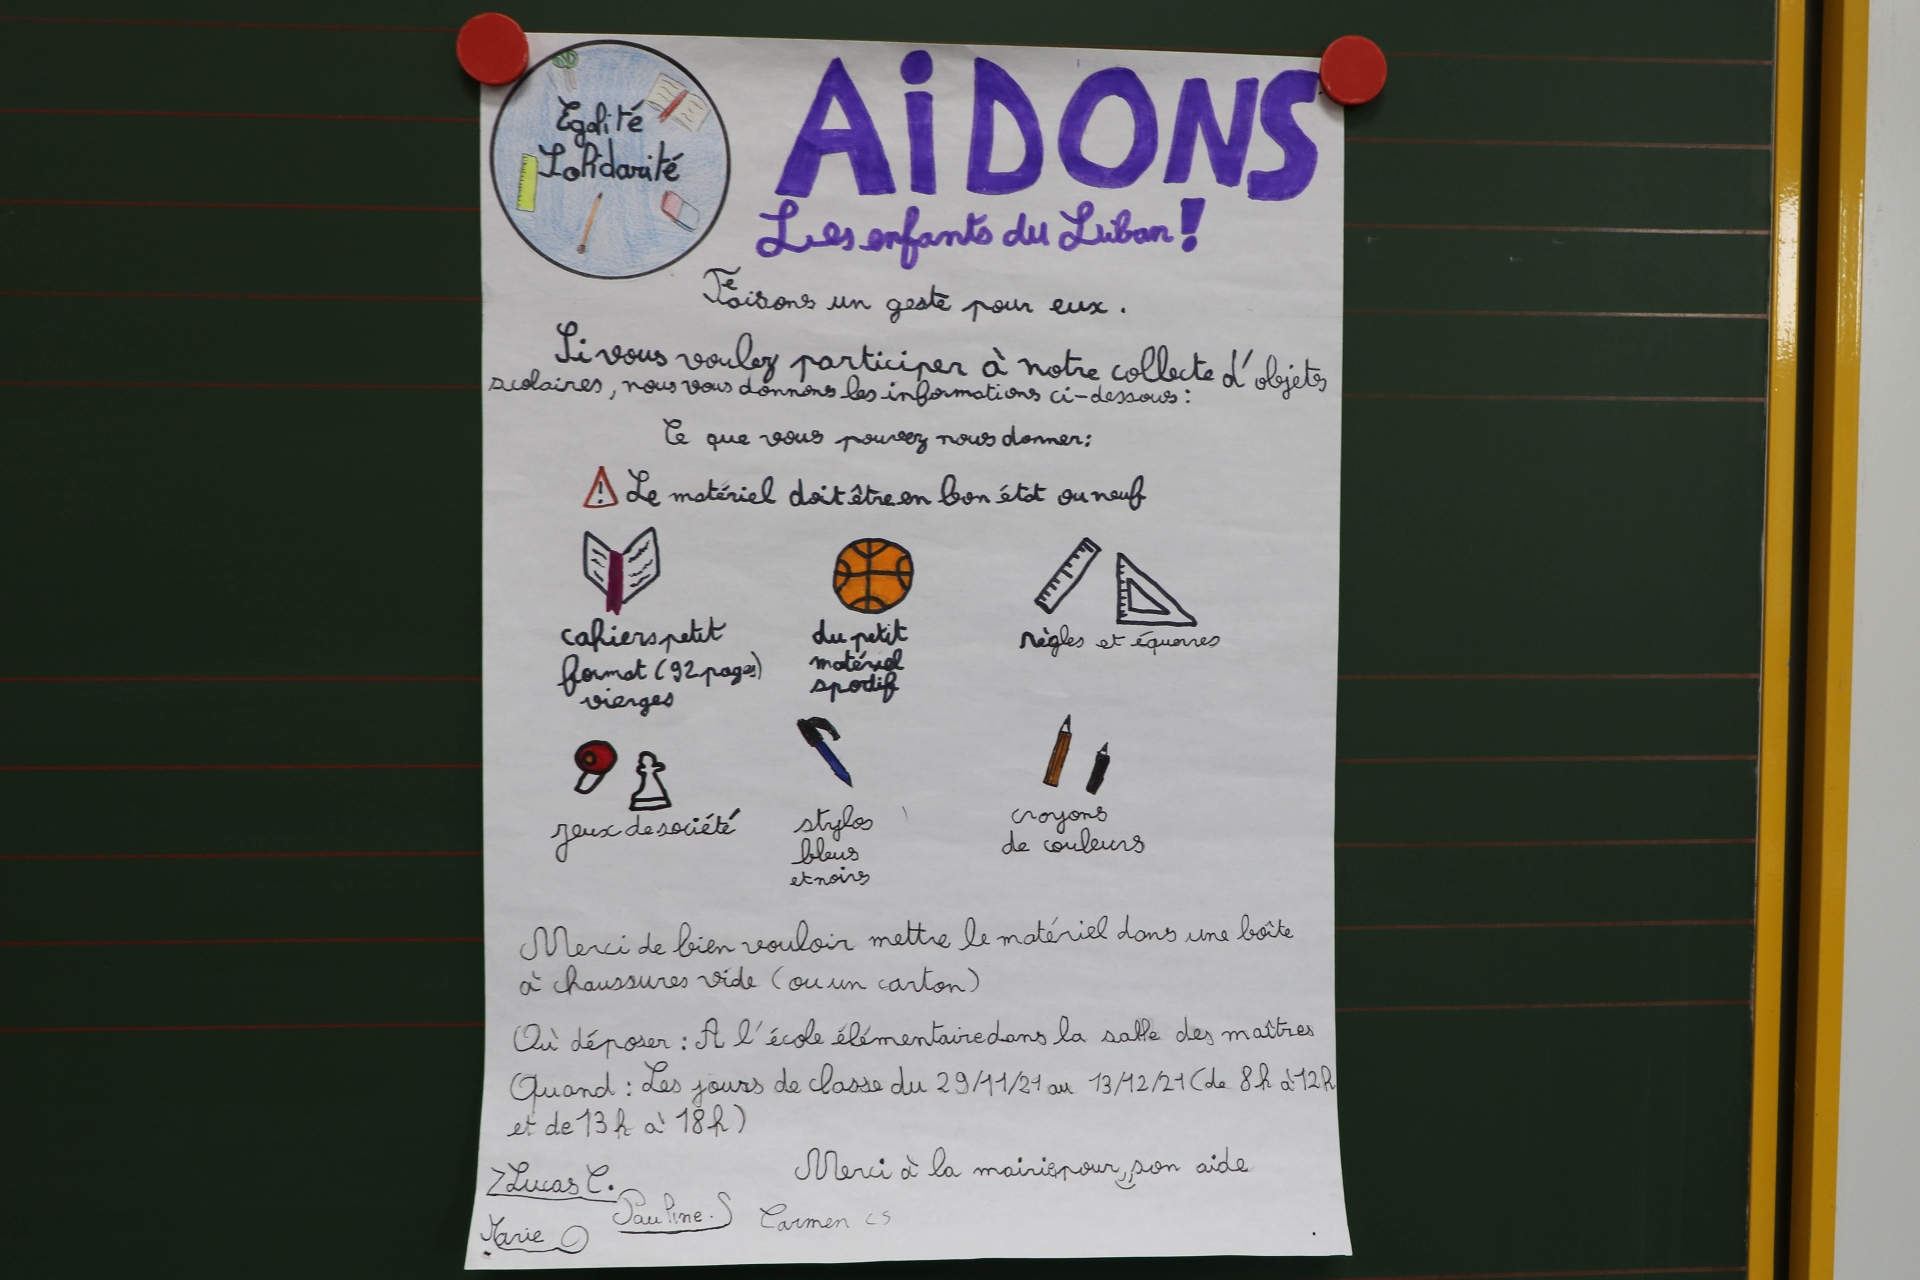 Egalité
Solidarité
AiDONS
Les enfants du Liban !
Faisons un geste pour eux.
Si vous voulez participer à notre collecte d'objets
scolaires, nous vous donnons les informations ci-dessous :
Ce que vous pouvez nous donner:
! Le matériel doit être en bon état ou neuf
cahiers petit
format (92 pages)
vierges
du petit
matériel
sportif
règles et équerres
jeux de société
stylos
bleus
et noirs
crayons
de couleurs
Merci de bien vouloir mettre le matériel dans une boîte
à chaussures vide (ou un carton)
Où déposer : A l'école élémentaire dans la salle des maîtres
Quand : Les jours de classe du 29/11/21 au 13/12/21 (de 8h à 12h
et de 13h à 18h)
Merci à la mairie pour son aide
Lucas C.
Pauline.S
Carmen CS
Marie